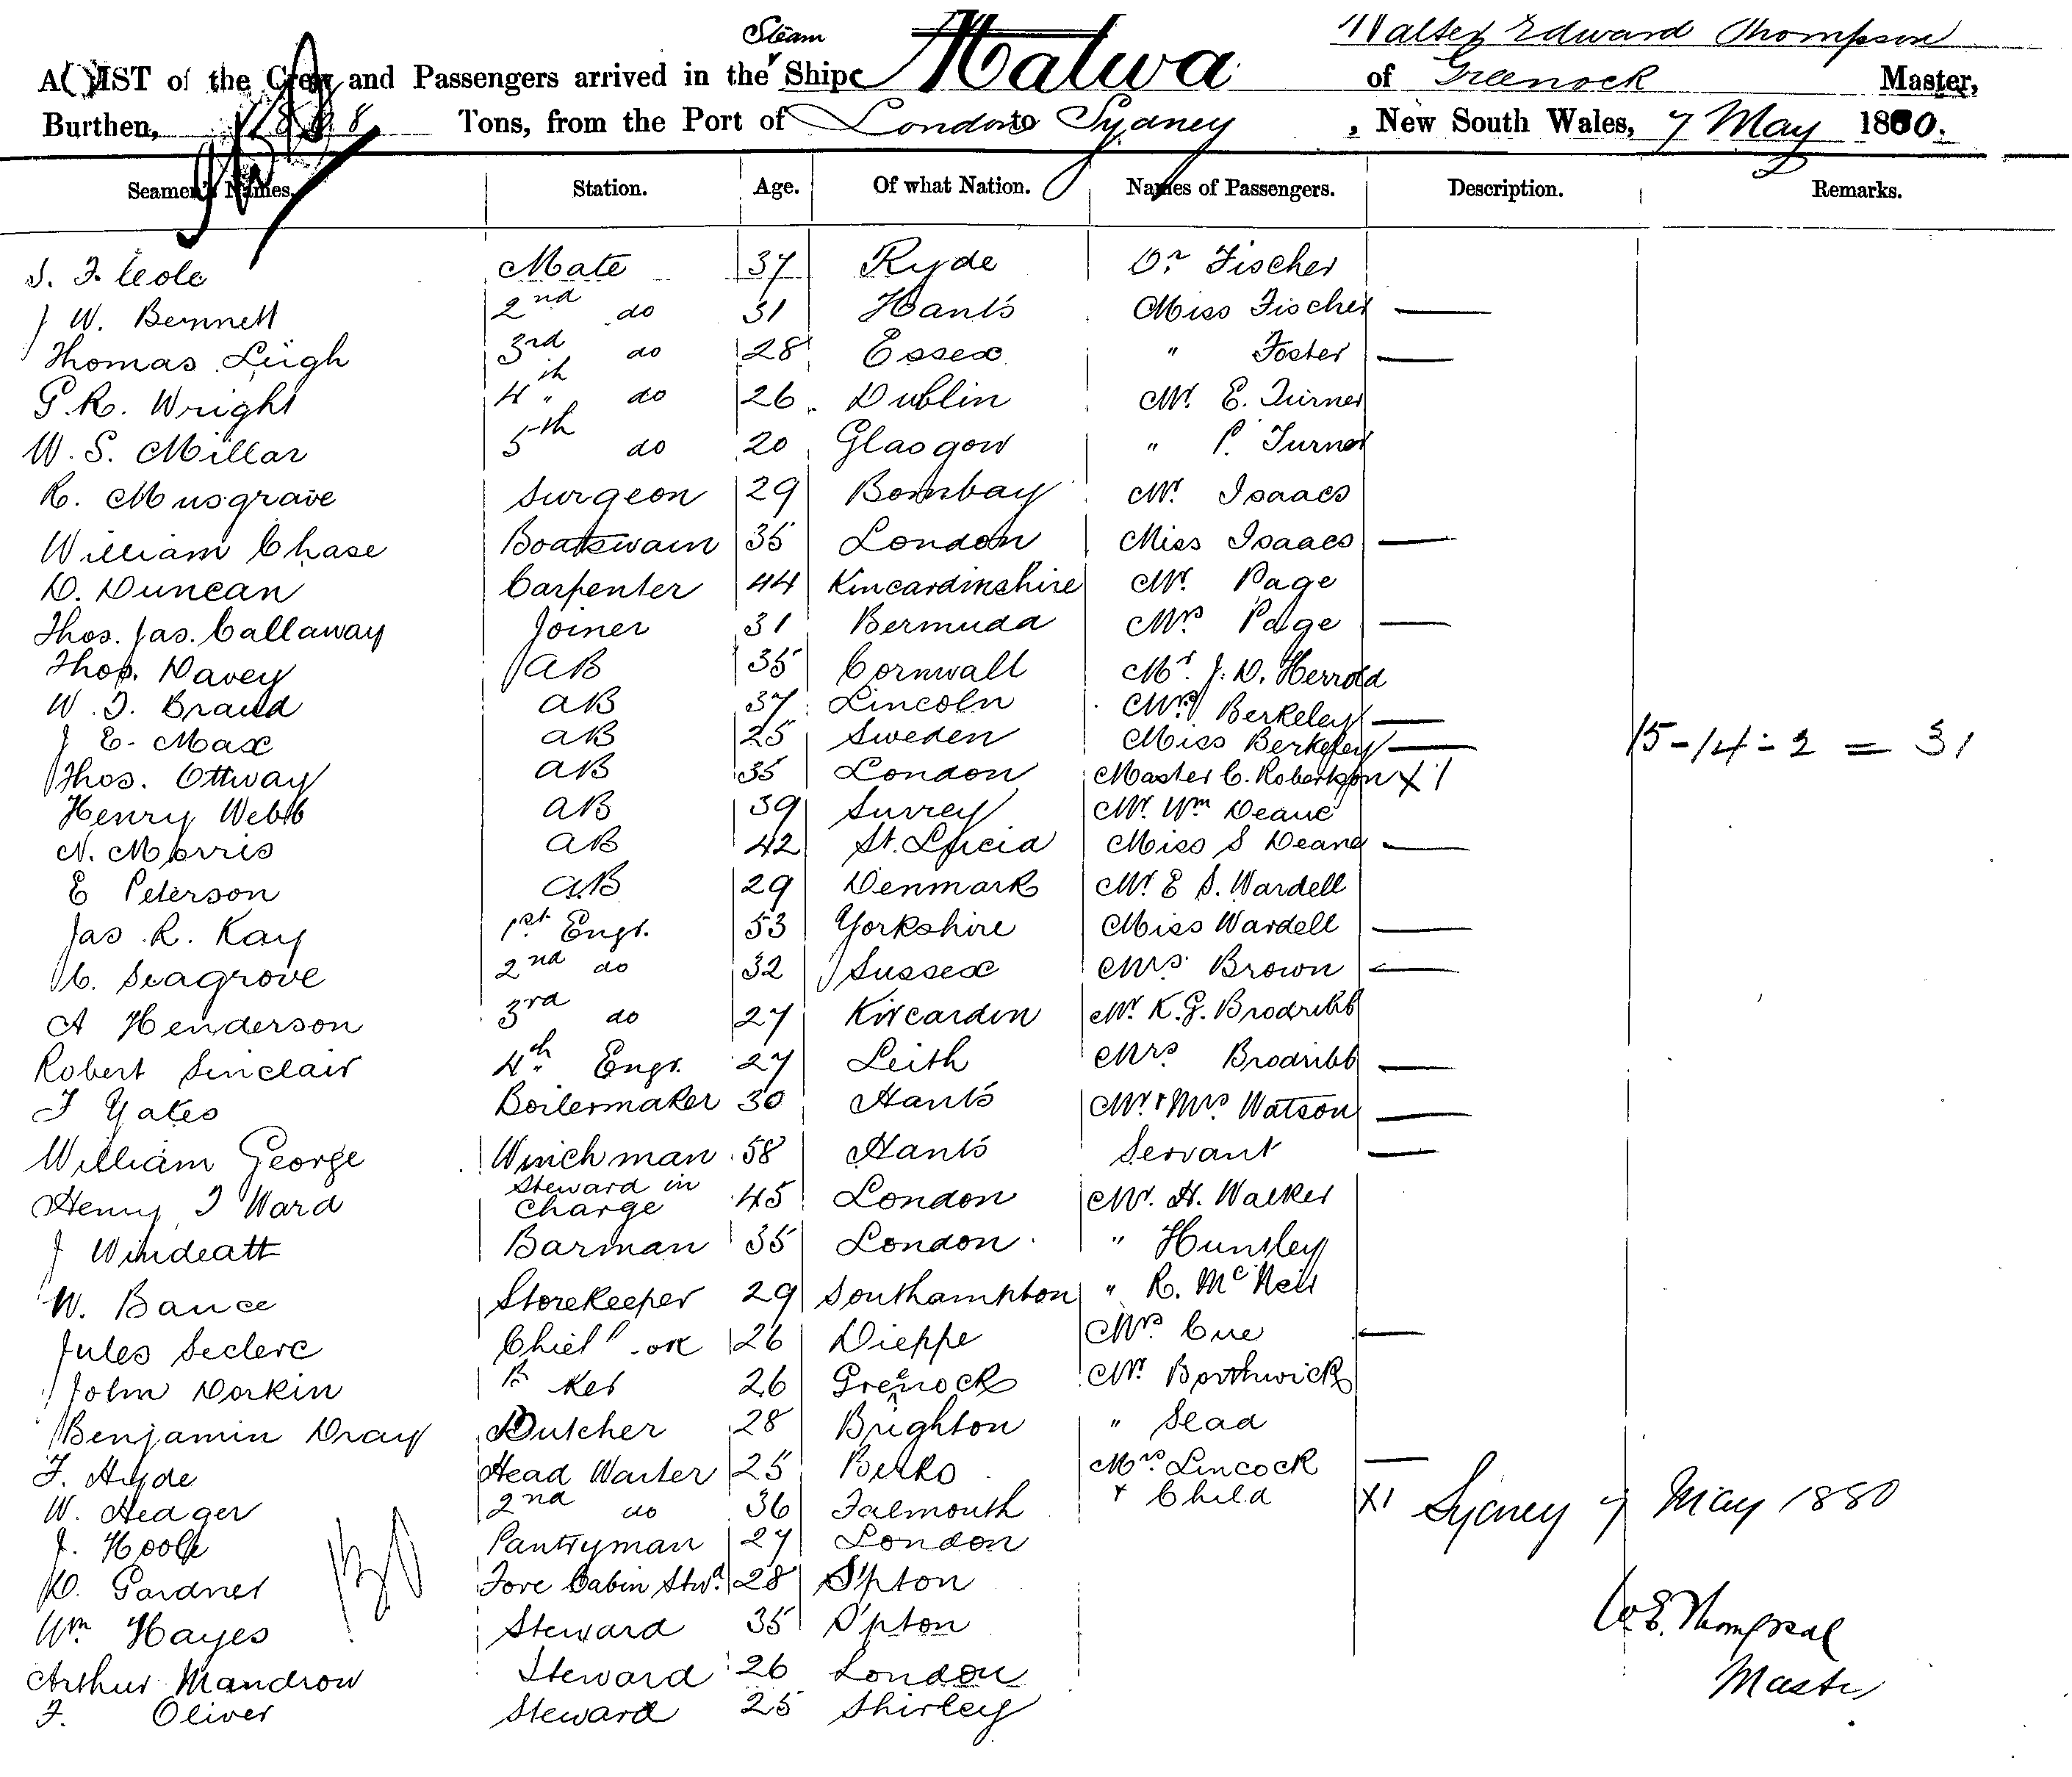 Steam
Walter Edward Thompson
A LIST of the Crew and Passengers arrived in the Ship Malwa of Greenock Master,
Burthen, Tons, from the Port of London to Sydney, New South Wales, 7 May 1880.
Seamen's Names. Station. Age. Of what Nation. Names of Passengers. Description. Remarks.
S. F. Cole Mate 37 Ryde Dr Fischer
J W. Bennett 2nd do 31 Hants Miss Fischer —
Thomas Leigh 3rd do 28 Essex " Foster —
G. R. Wright 4th do 26 Dublin Mr. E. Turner
W. S. Millar 5th do 20 Glasgow " P. Turner
R. Musgrave Surgeon 29 Bombay Mr. Isaacs
William Chase Boatswain 35 London Miss Isaacs —
D. Duncan Carpenter 44 Kincardinshire Mr. Page
Thos. Jas. Callaway Joiner 31 Bermuda Mrs Page —
Thos. Davey AB 35 Cornwall Mr. J. D. Herrold
W. T. Brand AB 37 Lincoln Mrs Berkeley —
J E. Max AB 25 Sweden Miss Berkeley — 15-14-2 = 31
Thos. Ottway AB 35 London Master C. Robertson X 1
Henry Webb AB 39 Surrey Mr. Wm Deane
N. Morris AB 42 St. Lucia Miss S Deane —
E Peterson AB 29 Denmark Mr. E S. Wardell
Jas. R. Kay 1st Engr. 53 Yorkshire Miss Wardell —
C. Seagrove 2nd do 32 Sussex Mrs. Brown —
A Henderson 3rd do 27 Kincardin Mr. K. G. Brodribb
Robert Sinclair 4th Engr. 27 Leith Mrs Brodribb —
F Yates Boilermaker 30 Hants Mr. & Mrs Watson —
William George Winchman 58 Hants Servant —
Henry J Ward Steward in Charge 45 London Mr. H. Walker
J Windeatt Barman 35 London " Hunsley
W. Bance Storekeeper 29 Southampton " R. McNeil
Jules Leclerc Chief 26 Dieppe Mrs Cue —
John Dorkin 26 Grenock Mr. Borthwick
Benjamin Dray Butcher 28 Brighton " Slad
F. Hyde Head Waiter 25 Berks Mrs. Lincock —
W. Hedger 2nd do 36 Falmouth & Child X1 Sydney 7 May 1880
J. Hoole Pantryman 27 London
D. Gardner Fore Cabin Stwd. 28 S'pton
Wm Hayes Steward 35 S'pton W. E. Thompson
Arthur Mandrow Steward 26 London Master
F. Oliver Steward 25 Shirley